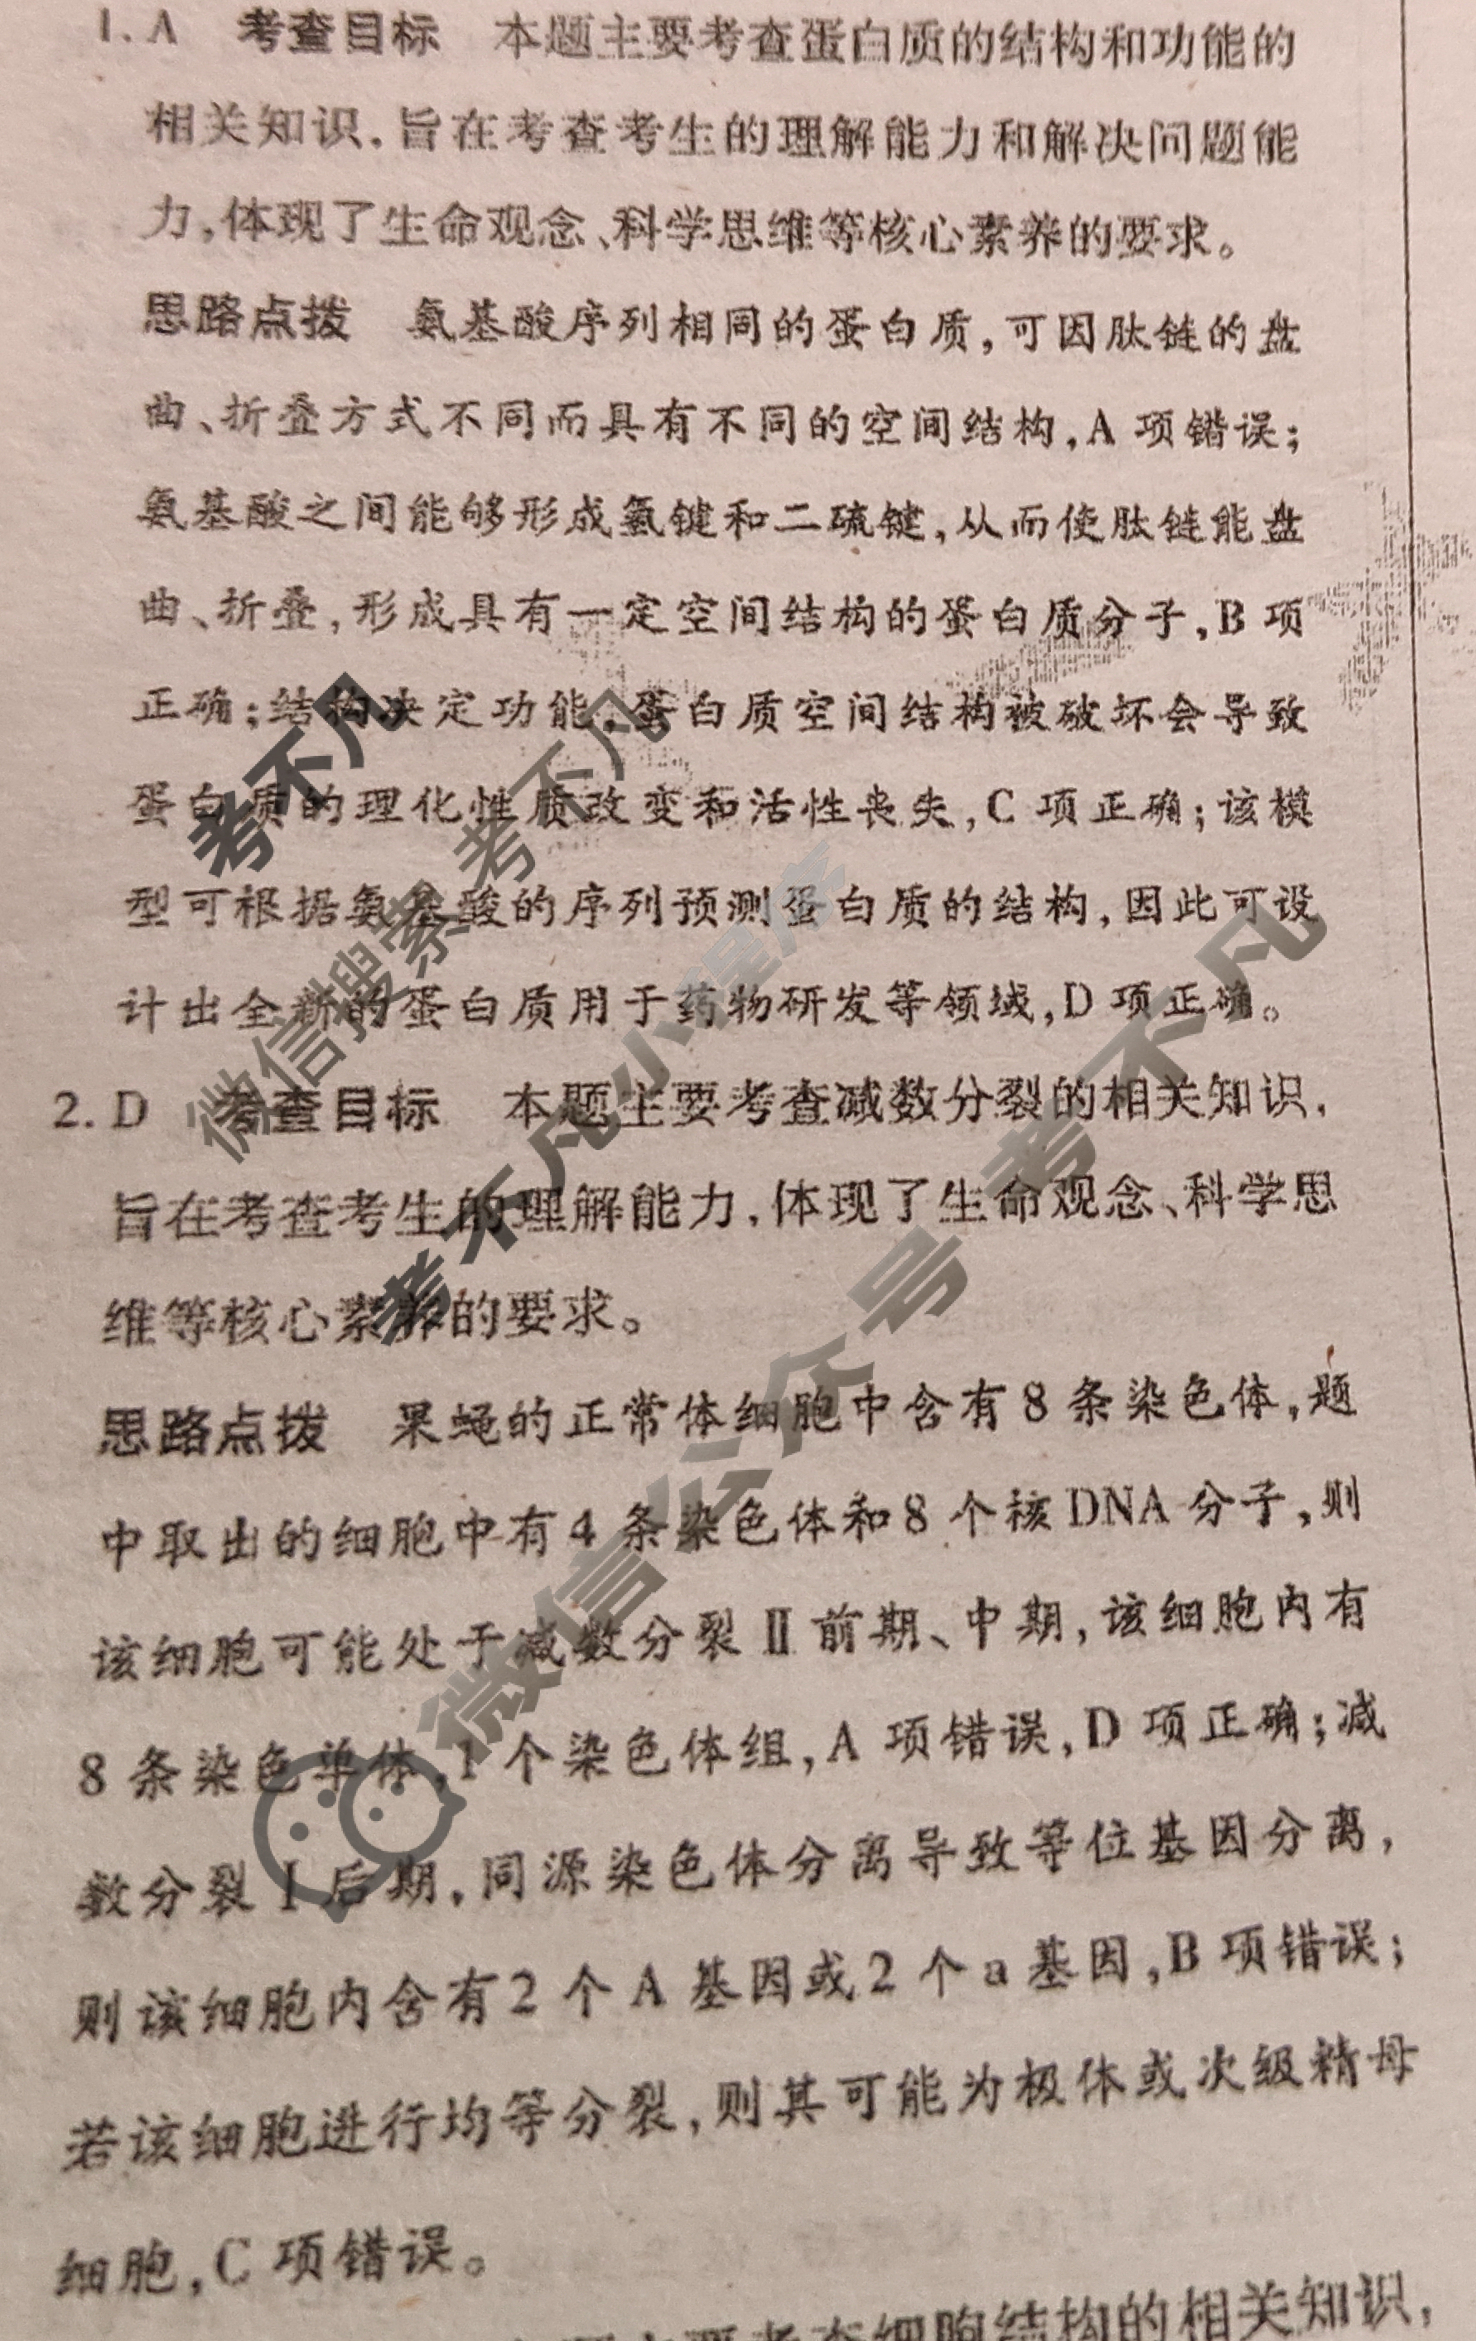 1. A 考查目标 本题主要考查蛋白质的结构和功能的
相关知识,旨在考查考生的理解能力和解决问题能
力,体现了生命观念、科学思维等核心素养的要求。
思路点拨 氨基酸序列相同的蛋白质,可因肽链的盘
曲、折叠方式不同而具有不同的空间结构,A 项错误;
氨基酸之间能够形成氢键和二硫键,从而使肽链能盘
曲、折叠,形成具有一定空间结构的蛋白质分子,B 项
正确;结构决定功能,蛋白质空间结构被破坏会导致
蛋白质的理化性质改变和活性丧失,C 项正确;该模
型可根据氨基酸的序列预测蛋白质的结构,因此可设
计出全新的蛋白质用于药物研发等领域,D 项正确。
2. D 考查目标 本题主要考查减数分裂的相关知识,
旨在考查考生的理解能力,体现了生命观念、科学思
维等核心素养的要求。
思路点拨 果蝇的正常体细胞中含有 8 条染色体,题
中取出的细胞中有 4 条染色体和 8 个核 DNA 分子,则
该细胞可能处于减数分裂Ⅱ前期、中期,该细胞内有
8 条染色单体,1 个染色体组,A 项错误,D 项正确;减
数分裂Ⅰ后期,同源染色体分离导致等位基因分离,
则该细胞内含有 2 个 A 基因或 2 个 a 基因,B 项错误;
若该细胞进行均等分裂,则其可能为极体或次级精母
细胞,C 项错误。
主要考查细胞结构的相关知识,
考不凡
微信搜索 考不凡
考不凡小程序
微信公众号 考不凡